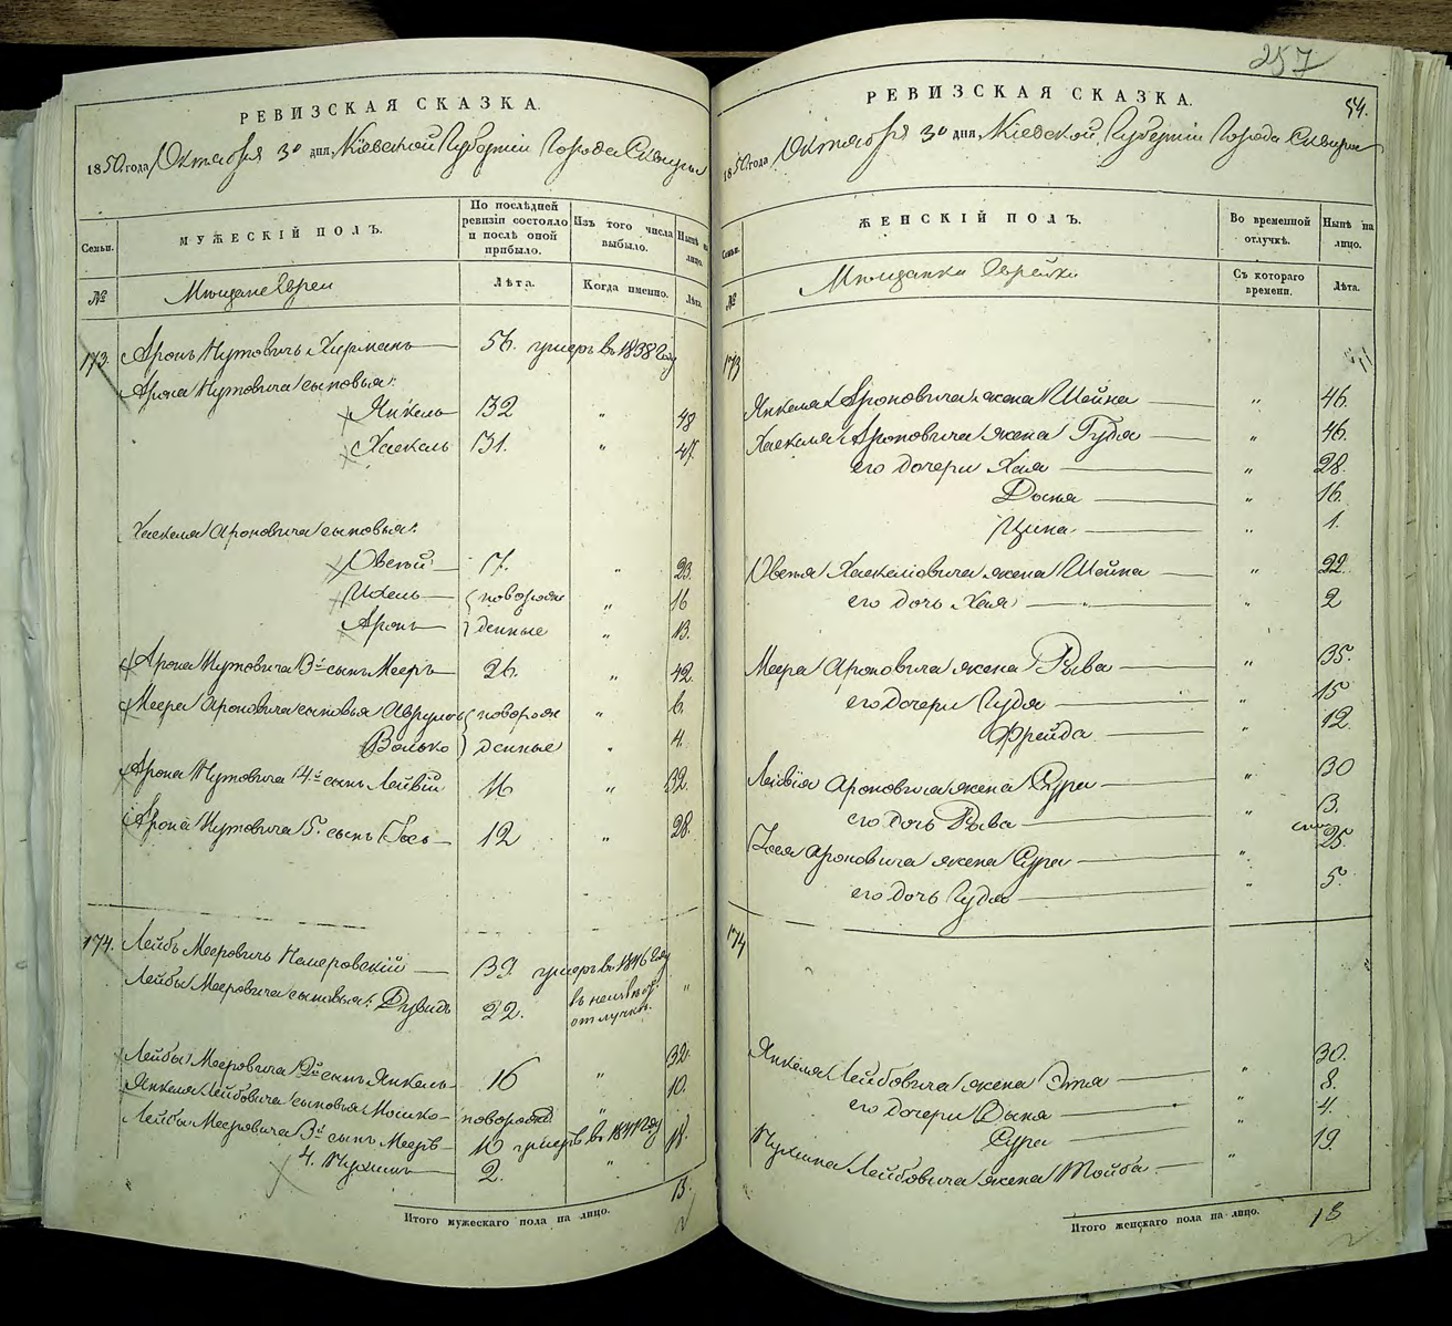 257
РЕВИЗСКАЯ СКАЗКА.
1850 года Октября 30 дня, Кіевской Губерніи Города Сквиры
Семьи.
МУЖЕСКІЙ ПОЛЪ.
По послѣдней ревизіи состояло и послѣ оной прибыло.
Изъ того числа выбыло.
Нынѣ на лицо.
№
Мѣщане Евреи
Лѣта.
Когда именно.
Лѣта.
173. Аронъ Нутовичъ 56. умеръ въ 1838 году
Арона Нутовича сыновья:
Янкель 32 " 48
Хаскель 31. " 47.
Хаскеля Ароновича сыновья:
Овсей 17. " 23.
Ицель новорож " 16
Аронъ денные " 13.
Арона Нутовича 3й сынъ Мееръ 26. " 42.
Меера Ароновича сыновья новорож " 6.
Волько денные " 4.
Арона Нутовича 4й сынъ Лейвій 16 " 32.
Арона Нутовича 5. сынъ Іось 12 " 28.
174. Лейбъ Мееровичъ 39. умеръ въ 1846 году
Лейбы Мееровича сыновья: Дувидъ 22. въ неизвѣст. отлучкѣ. "
Лейбы Мееровича 2й сынъ Янкель 16 " 32.
Янкеля Лейбовича сыновья Мошко новорожд. " 10.
Лейбы Мееровича 3й сынъ Мееръ 10 умеръ въ 1841 году
4. Нухимъ 2. " 18.
13.
Итого мужескаго пола на лицо.
РЕВИЗСКАЯ СКАЗКА.
54.
1850 года Октября 30 дня, Кіевской Губерніи Города Сквиры
Семьи.
ЖЕНСКІЙ ПОЛЪ.
Во временной отлучкѣ.
Нынѣ на лицо.
№
Мѣщанки Еврейки
Съ котораго времени.
Лѣта.
173
Янкеля Ароновича жена Шейна " 46.
Хаскеля Ароновича жена Гудя " 46.
его дочери Хая " 28.
Досья " 16.
Ципа " 1.
Овсея Хаскеліовича жена Шейна " 22.
его дочь Хая " 2
Меера Ароновича жена Рыва " 35.
его дочери Гудя " 15
Фрейда " 12.
Лейвія Ароновича жена Сура " 30
его дочь Рыва " 3.
Іося Ароновича жена Сура " 25.
его дочь Гудя " 5.
174
Янкеля Лейбовича жена Этя " 30.
его дочери Дыня " 8.
Сура " 4.
Нухима Лейбовича жена Тойба " 19.
Итого женскаго пола на лицо.
18